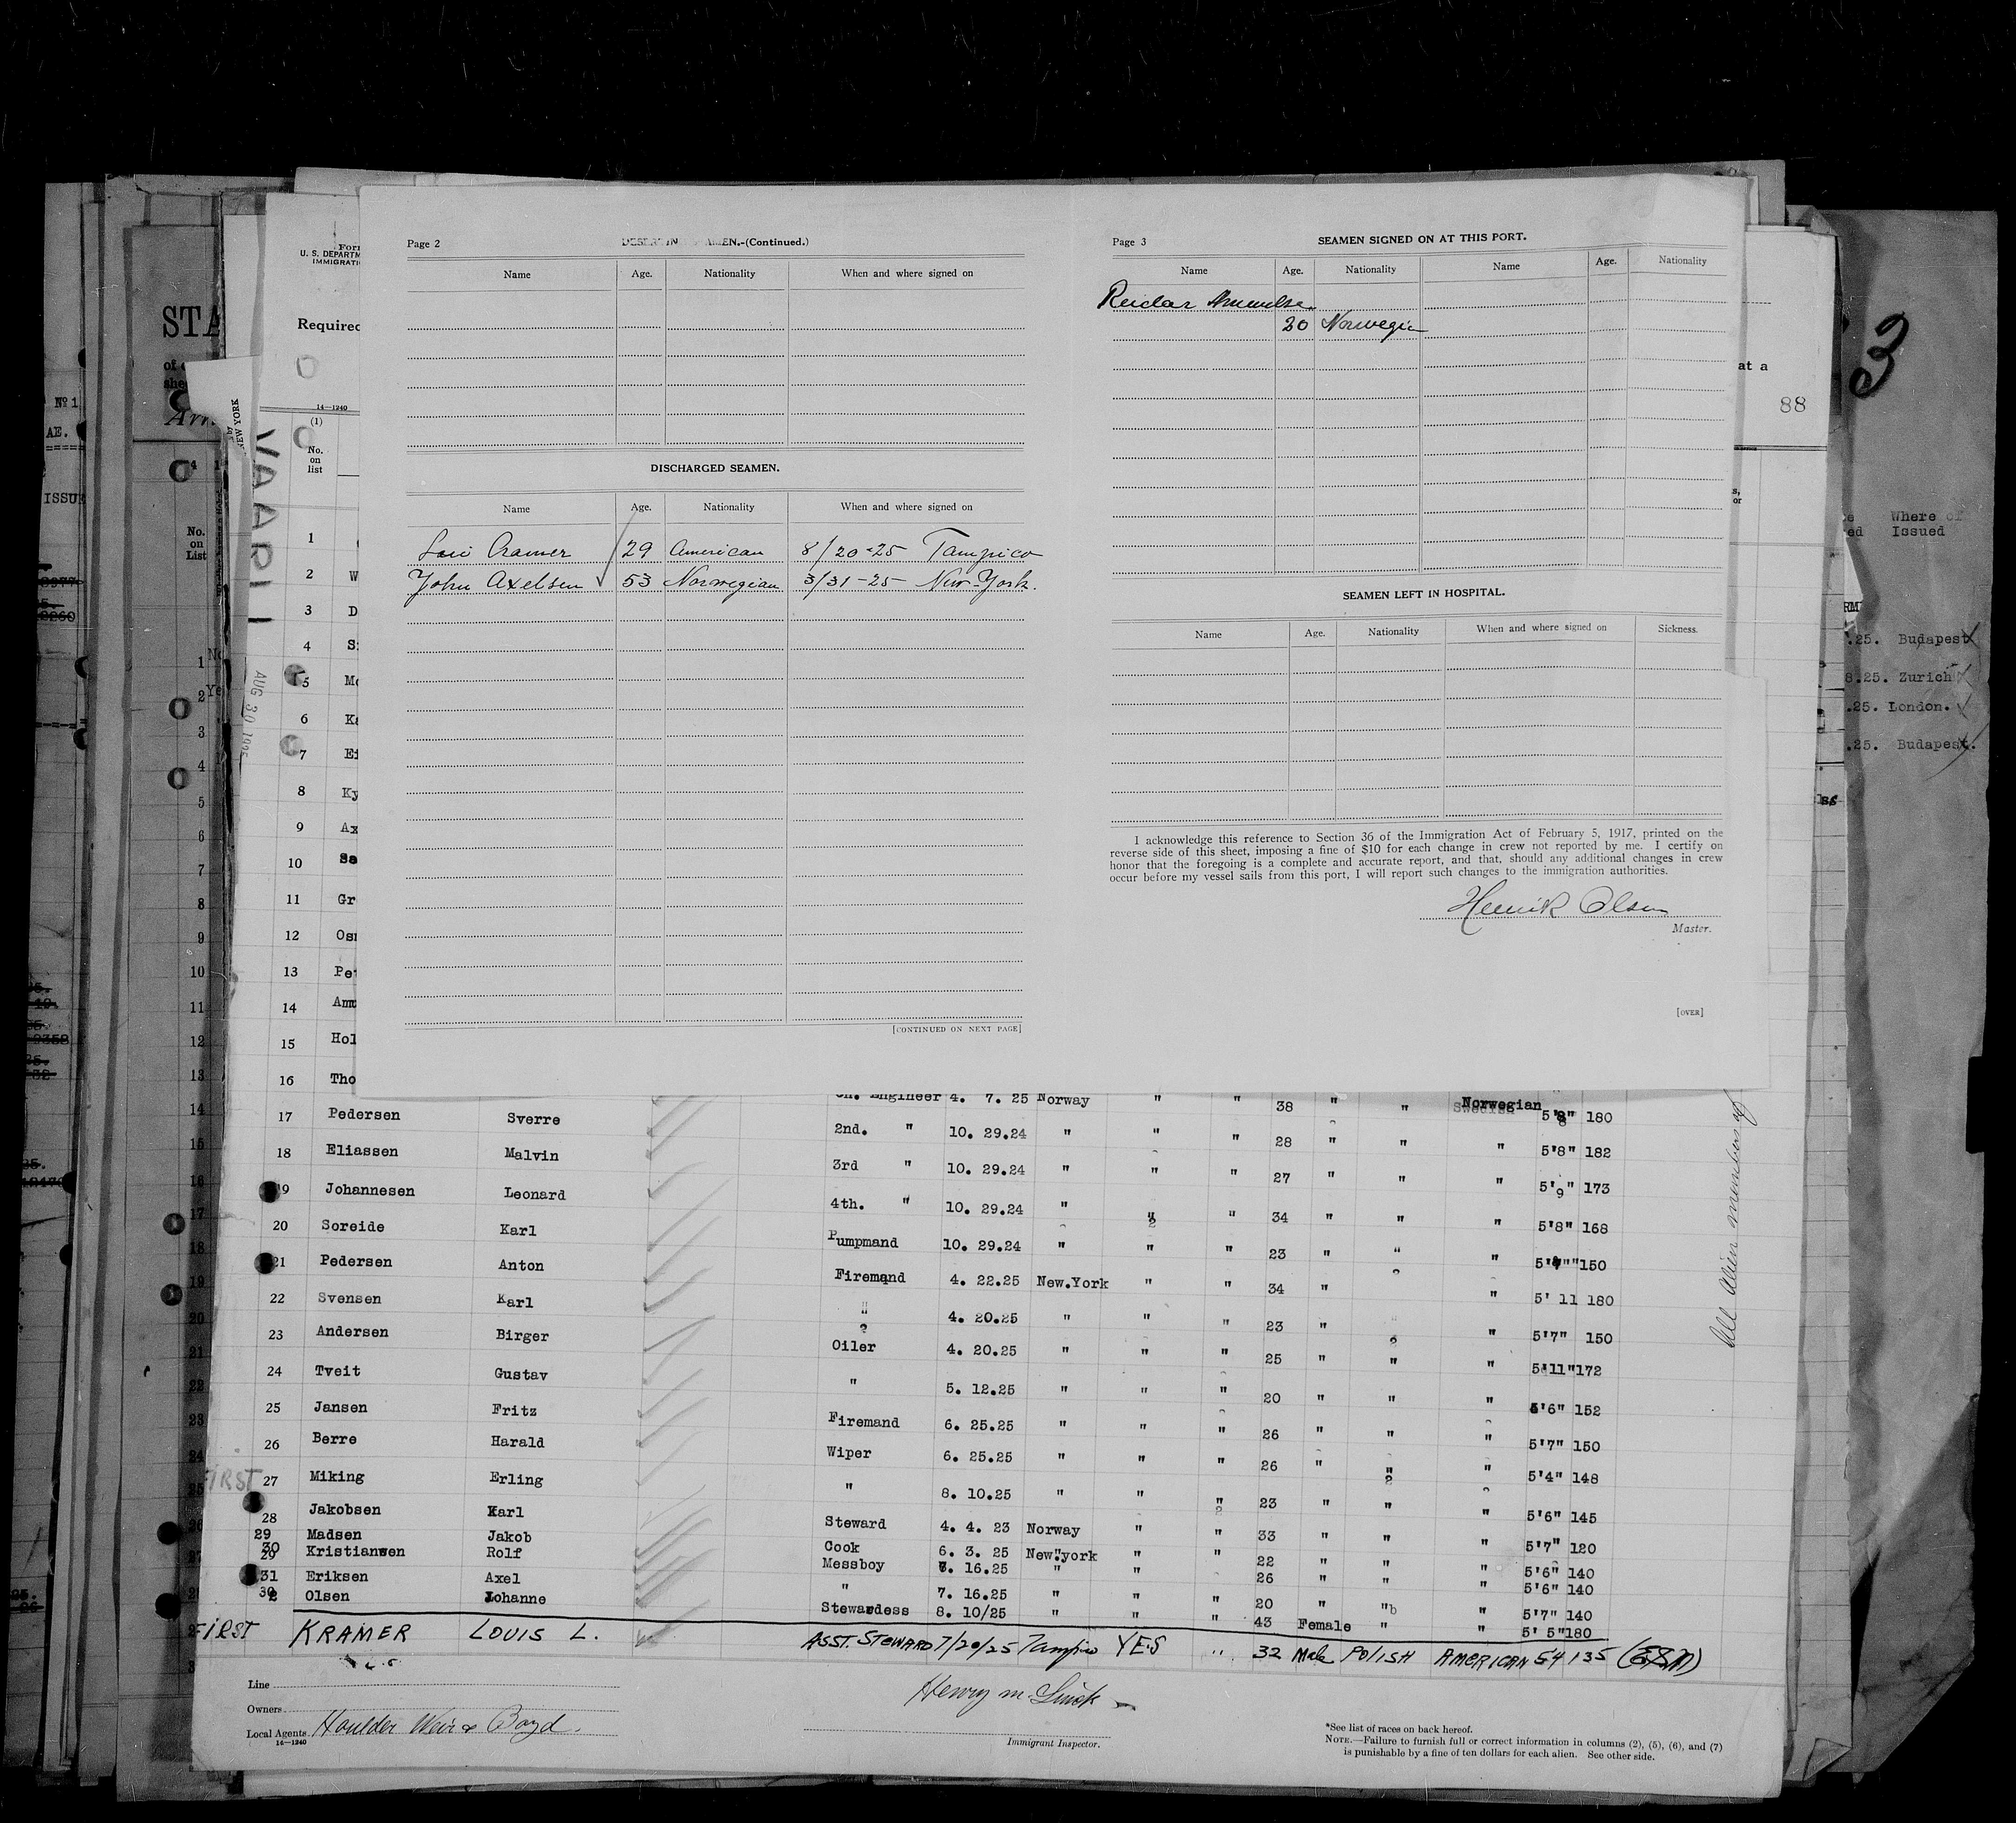 Page 2
(Continued.)
Name Age. Nationality When and where signed on
DISCHARGED SEAMEN.
Name Age. Nationality When and where signed on
Cramer 29 American 8/20-25 Tampico
John Axelsen 53 Norwegian 3/31-25 New-York.
[CONTINUED ON NEXT PAGE]
Page 3
SEAMEN SIGNED ON AT THIS PORT.
Name Age. Nationality Name Age. Nationality
Reidar
20 Norwegin
SEAMEN LEFT IN HOSPITAL.
Name Age. Nationality When and where signed on Sickness.
I acknowledge this reference to Section 36 of the Immigration Act of February 5, 1917, printed on the
reverse side of this sheet, imposing a fine of $10 for each change in crew not reported by me. I certify on
honor that the foregoing is a complete and accurate report, and that, should any additional changes in crew
occur before my vessel sails from this port, I will report such changes to the immigration authorities.
Henrik Olsen
Master.
[OVER]
Form
U. S. DEPARTM
IMMIGRATI
Required
14—1240
(1)
No.
on
list
1
2 W
3 D
4 Si
5 Mo
6 Ka
7 Ei
8 Ky
9 Ax
10 Sa
11 Gr
12 Osm
13 Pet
14 Amu
15 Hol
16 Tho
Engineer 4. 7. 25 Norway " " 38 " " Norwegian 5'8" 180
17 Pedersen Sverre
2nd. " 10. 29.24 " " " 28 " " " 5'8" 182
18 Eliassen Malvin
3rd " 10. 29.24 " " " 27 " " " 5'9" 173
19 Johannesen Leonard
4th. " 10. 29.24 " " " 34 " " " 5'8" 168
20 Soreide Karl
Pumpmand 10. 29.24 " " " 23 " " " 150
21 Pedersen Anton
Firemand 4. 22.25 New.York " " 34 " " 5' 11 180
22 Svensen Karl
" 4. 20.25 " " " 23 " " 5'7" 150
23 Andersen Birger
Oiler 4. 20.25 " " " 25 " " " 5'11"172
24 Tveit Gustav
" 5. 12.25 " " " 20 " " " 5'6" 152
25 Jansen Fritz
Firemand 6. 25.25 " " " 26 " " " 5'7" 150
26 Berre Harald
Wiper 6. 25.25 " " " 26 " " " 5'4" 148
FIRST 27 Miking Erling
" 8. 10.25 " " " 23 " " " 5'6" 145
28 Jakobsen Karl
Steward 4. 4. 23 Norway " " 33 " " " 5'7" 120
29 Madsen Jakob
Cook 6. 3. 25 New.york " " 22 " " " 5'6" 140
30 Kristiansen Rolf
Messboy 7. 16.25 " " 26 " " " 5'6" 140
31 Eriksen Axel
" 7. 16.25 " " " 20 " " " 5'7" 140
Olsen Johanne
Stewardess 8. 10/25 " " " 43 Female " " 5' 5"180
FIRST KRAMER LOUIS L. ASST. STEWARD 7/20/25 Tampico YES " 32 Male POLISH AMERICAN 54 135
Line
Owners
Local Agents Houlder Weir & Boyd.
14—1240
Henry M.
Immigrant Inspector.
*See list of races on back hereof.
NOTE.—Failure to furnish full or correct information in columns (2), (5), (6), and (7)
is punishable by a fine of ten dollars for each alien. See other side.
All alien members of
AUG 30 1925
NEW YORK
STA
No.
on
List
No 1
AE.
ISSU
at a
88
3
Where of
Issued
.25. Budapest
8.25. Zurich
.25. London.
.25. Budapest.